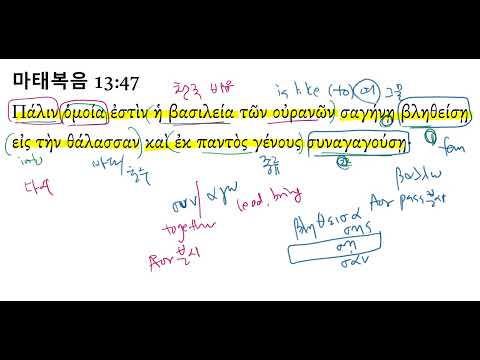 마태복음 13:47
천국 비유 is like (to) 에 그물
Πάλιν ὁμοία ἐστὶν ἡ βασιλεία τῶν οὐρανῶν σαγήνῃ βληθείσῃ
εἰς τὴν θάλασσαν καὶ ἐκ παντὸς γένους συναγαγούσῃ·
into 바다 종류 ② ① fem
다시 συν/αγω lead, bring βαλλω
together Aor pass 분사
Aor 분사 βληθεισα
σης
ση
σαν